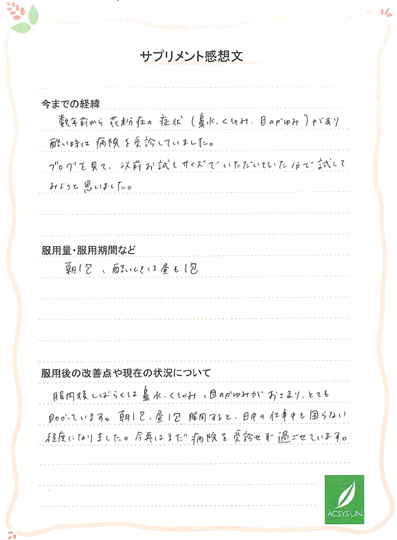 サプリメント感想文
今までの経緯
数年前から花粉症の症状（鼻水、くしゃみ、目のかゆみ）があり
酷い時は病院を受診していました。
ブログを見て、以前お試しサイズでいただいていた分で試して
みようと思いました。
服用量・服用期間など
朝1包、酷いときは昼も1包
服用後の改善点や現在の状況について
服用後しばらくは鼻水、くしゃみ、目のかゆみがおさまり、とても
助かっています。朝1包、昼1包服用すると、日中の仕事中も困らない
程度になりました。今年はまだ病院を受診せず過ごせています。
ACSYSUN